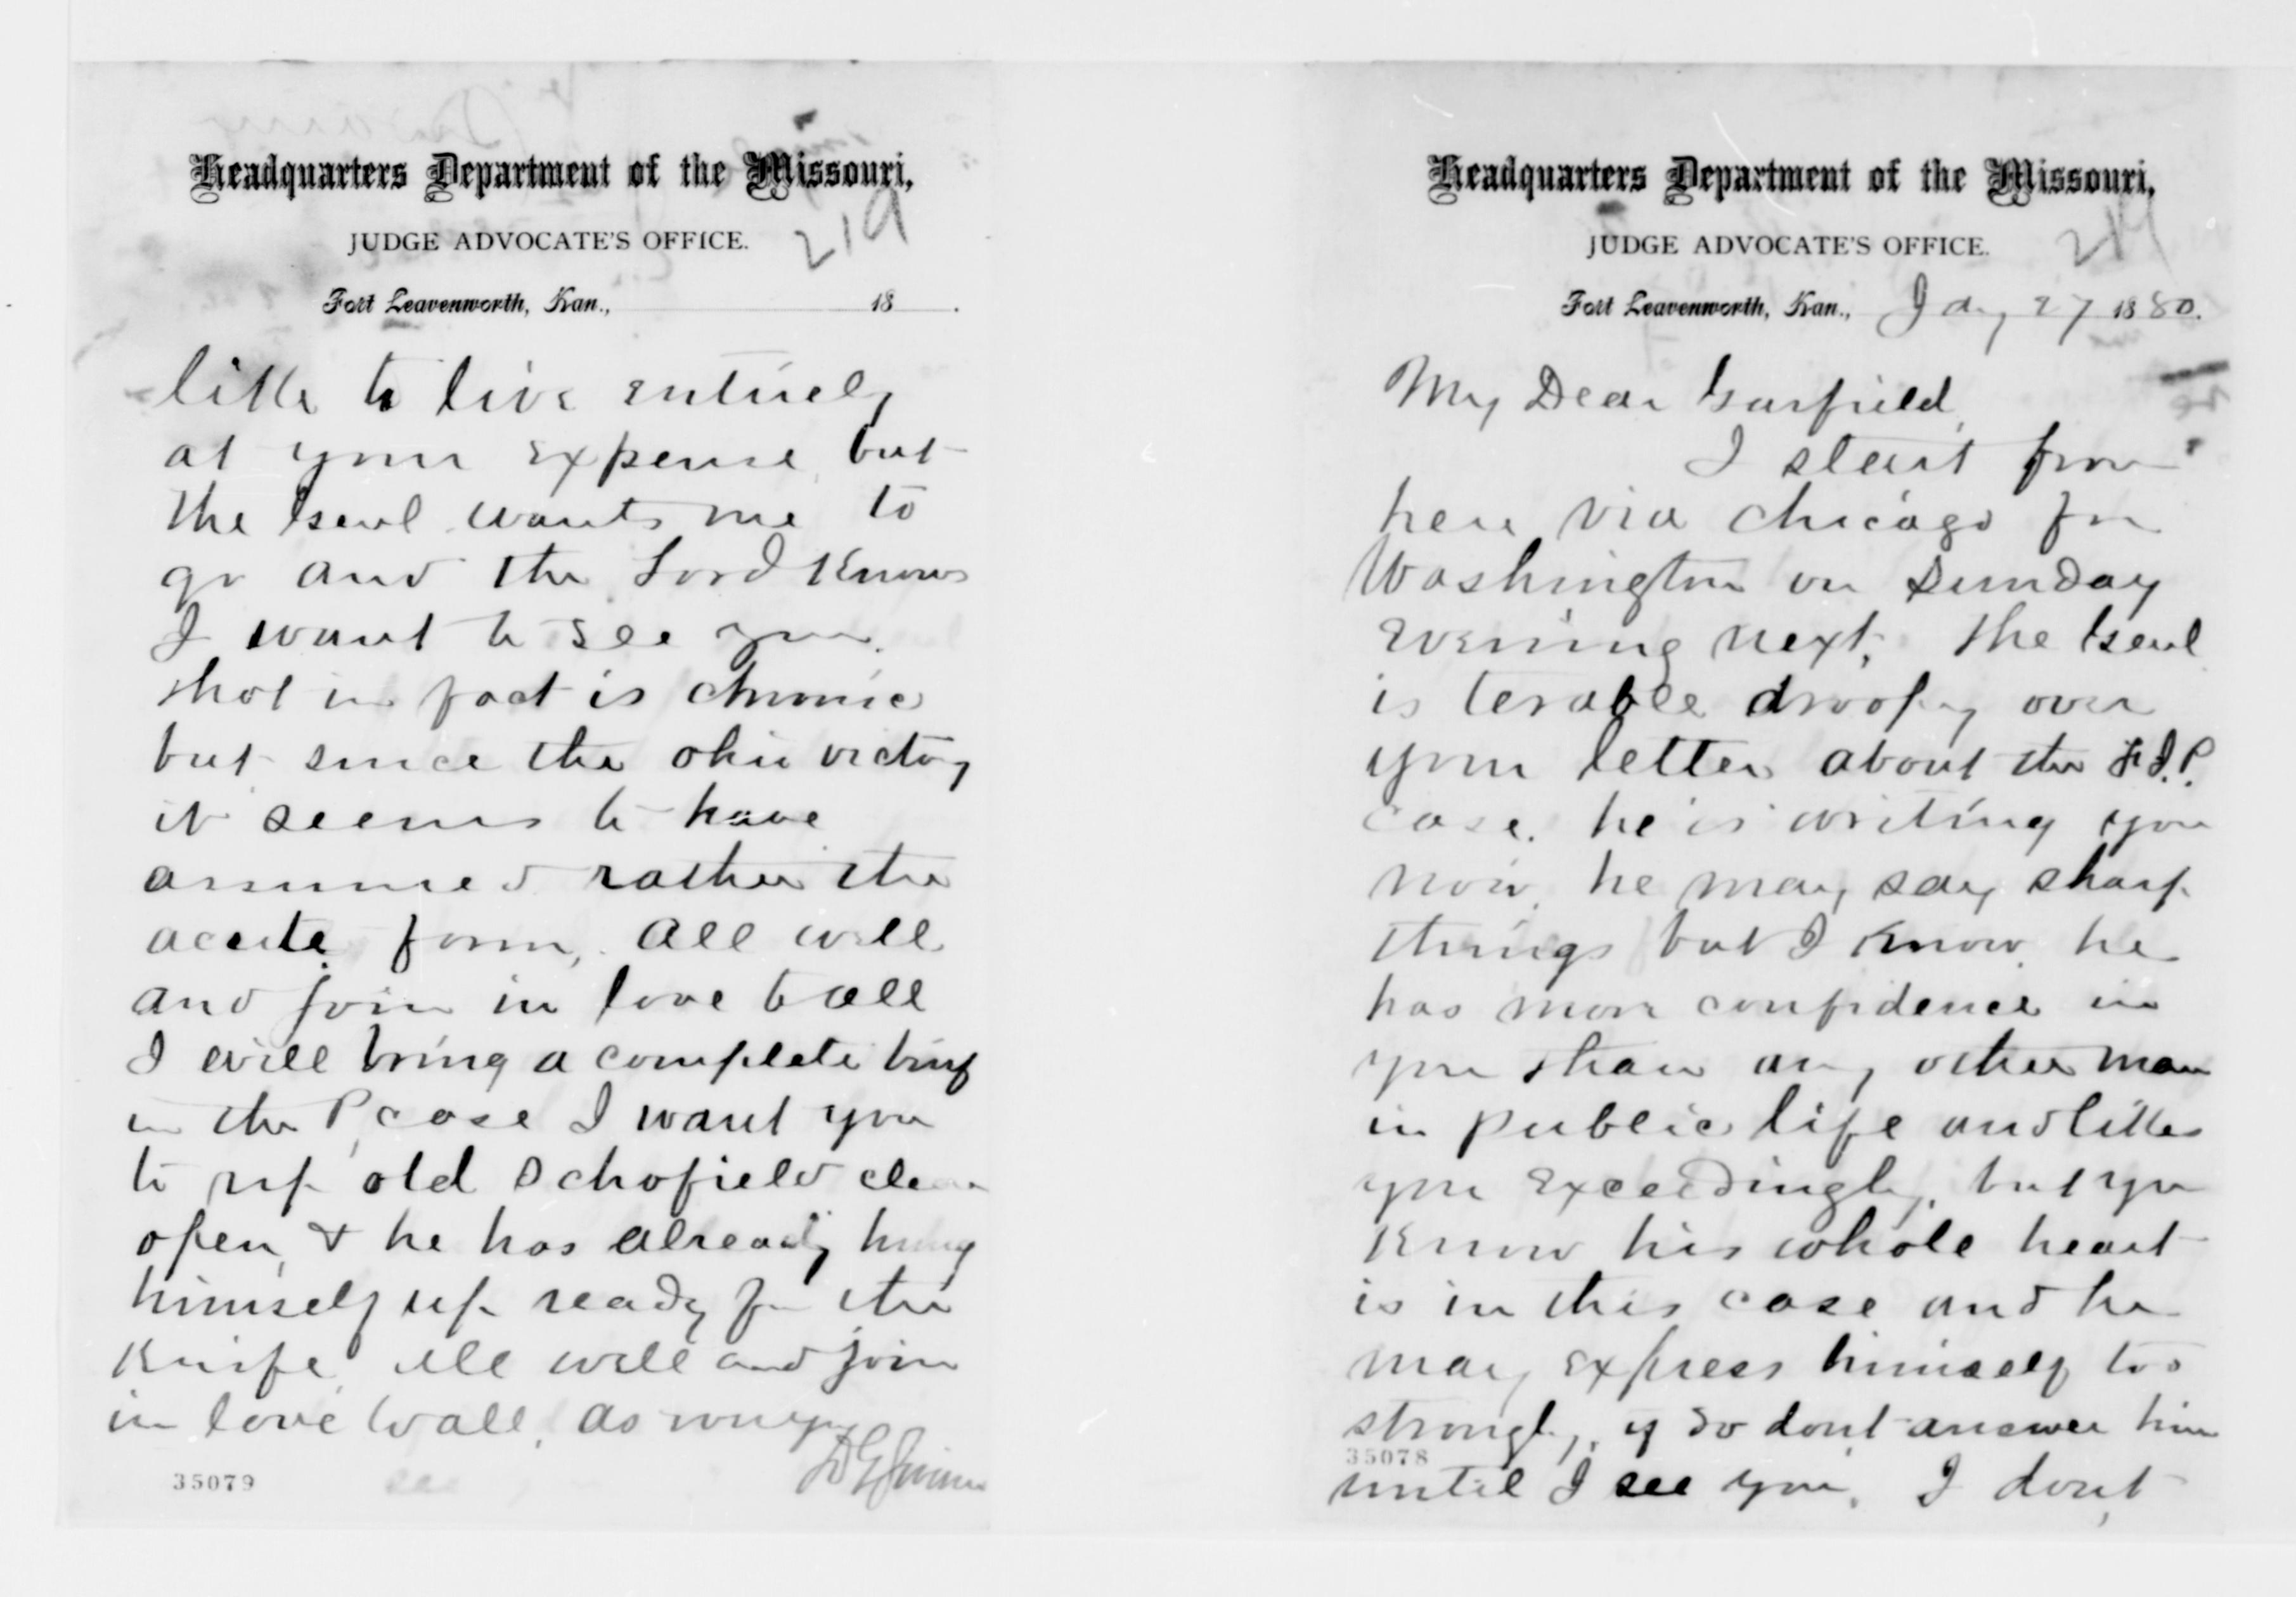 Headquarters Department of the Missouri,
JUDGE ADVOCATE'S OFFICE.
219
Fort Leavenworth, Kan., 18 .
like to live entirely
at your expense but
the Genl wants me to
go and the Lord Knows
I want to see you.
that in fact is chronic
but since the ohio victory
it seems to have
assumed rather the
acute form, all well
and join in love to all
I will bring a complete brief
in the P. case I want you
to rip old Schofield clean
open, & he has already hung
himself up ready for the
Knife all well and join
in love to all, as ever yr
D G Swaim
35079
Headquarters Department of the Missouri,
JUDGE ADVOCATE'S OFFICE.
219
Fort Leavenworth, Kan., Jany 27 1880.
My Dear Garfield,
I start from
here via Chicago for
Washington on Sunday
evening next, the Genl
is terable droopy over
your letter about the F.J.P.
case. he is writing you
now, he may say sharp
things but I Know he
has more confidence in
you than any other man
in public life and likes
you exceedingly, but you
Know his whole heart
is in this case and he
may express himself too
strongly, if so dont answer him
35078
until I see you. I dont